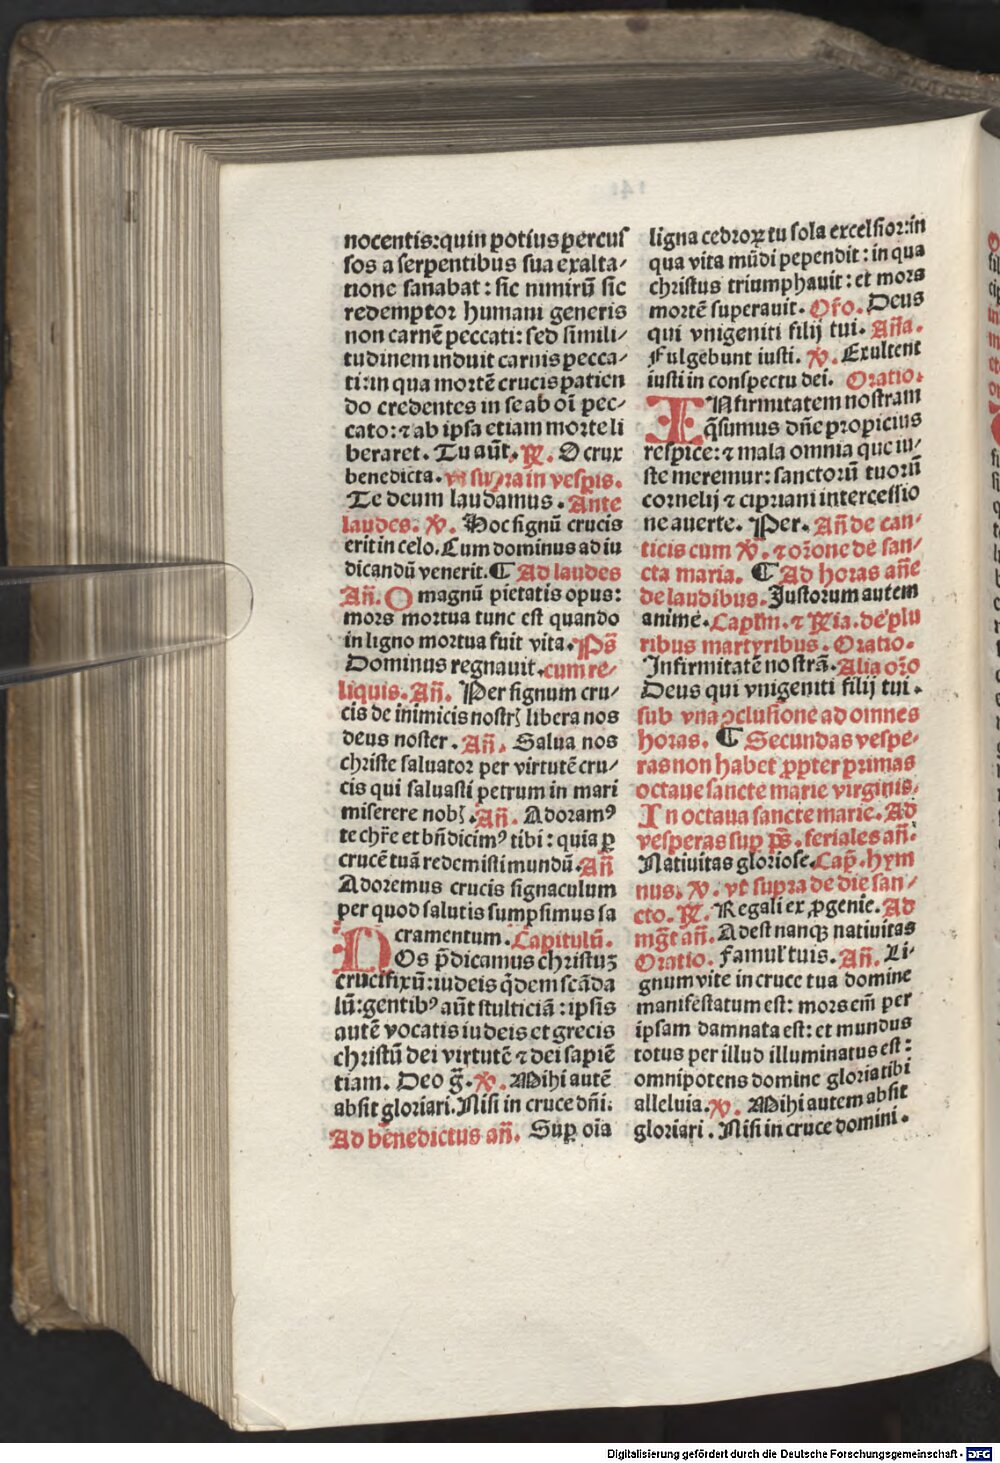 nocentis:quin ꝑotius ꝑercus
sos a serpentibus sua exalta/
tione sanabat : sic nimirū sic
redemptor humani generis
non carnē peccati: sed simili/
tudinem induit carnis pecca/
ti:in qua mortē crucis patien
do credentes in se ab oī pec/
cato: ⁊ ab ipsa etiam morte li
beraret. Tu aūt. ℟. O crux
benedicta. vt supra in vesꝑis.
Te deum laudamus. Ante
laudes. ℣. Hoc signū crucis
erit in celo. Cum dominus ad iu
dicandū venerit. ¶ Ad laudes
Añ. O magnū pietatis opus:
mors mortua tunc est quando
in ligno mortua fuit vita. Ps̄
Dominus regnauit. cum re/
liquis. Añ. Per signum cru/
cis de inimicis nostrꝭ libera nos
deus noster. Añ. Salua nos
christe saluator per virtutē cru/
cis qui saluasti petrum in mari
miserere nobꝭ. Añ. Adoramꝰ
te chr̄e et bñdicimꝰ tibi: quia ꝑ
crucē tuā redemisti mundū. Añ
Adoremus crucis signaculum
per quod salutis sumpsimus sa
cramentum. Capitulū.
NOs p̄dicamus christuꝫ
crucifixū: iudeis q̄dem scāda
lū: gentibꝰ aūt stulticiā: ipsis
autē vocatis iudeis et grecis
christū dei virtutē ⁊ dei sapiē
tiam. Deo g̃. ℣. Mihi autē
absit gloriari. Nisi in cruce dñi:
Ad bēnedictus añ. Suꝑ oīa
ligna cedroꝝ tu sola excelsior: in
qua vita mūdi pependit: in qua
christus triumphauit: et mors
mortē superauit. Or̄o. Deus
qui vnigeniti filij tui. Aña.
Fulgebunt iusti. ℣. Exultent
iusti in conspectu dei. Oratio.
INfirmitatem nostram
q̄sumus dñe propicius
respice: ⁊ mala omnia que iu/
ste meremur: sanctorū tuorū
cornelij ⁊ cipriani intercessio
ne auerte. Per. Añ de can/
ticis cum ℣. ⁊ or̄one de san/
cta maria. ¶ Ad horas añe
de laudibus. Justorum autem
anime. Caplm̄. ⁊ ℟ia. de plu
ribus martyribus. Oratio.
Infirmitatē nostrā. Alia or̄o
Deus qui vnigeniti filij tui.
sub vna ꝯclusione ad omnes
horas. ¶ Secundas vespe/
ras non habet ꝓpter primas
octaue sancte marie virginis.
In octaua sancte marie. Ad
vesperas suꝑ ps̄. feriales añ.
Natiuitas gloriose. Cap̄. hym
nus. ℣. vt supra de die san/
cto. ℟. Regali ex ꝓgenie. Ad
mg̃t añ. Adest nanqꝫ natiuitas
Oratio. Famul' tuis. Añ. Li/
gnum vite in cruce tua domine
manifestatum est: mors em̄ per
ipsam damnata est: et mundus
totus per illud illuminatus est:
omnipotens domine gloria tibi
alleluia. ℣. Mihi autem absit
gloriari. Nisi in cruce domini.
Digitalisierung gefördert durch die Deutsche Forschungsgemeinschaft - DFG